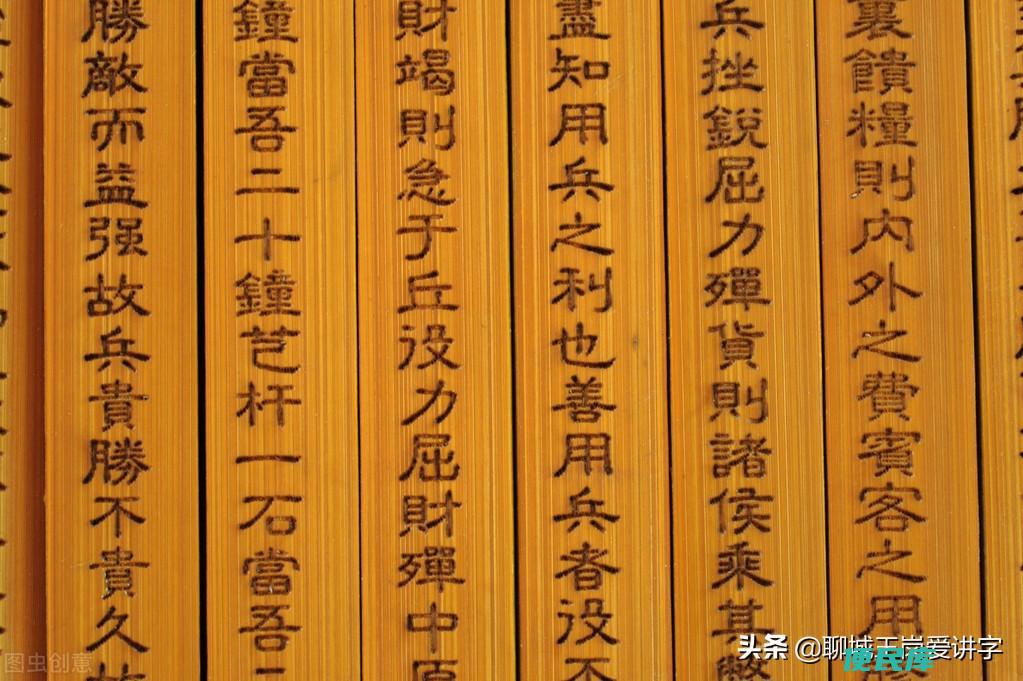 裏饋糧則內外之費賓客之用
兵挫銳屈力殫貨則諸侯乘其弊
盡知用兵之利也善用兵者役不
財竭則急于丘役力屈財殫中原
鐘當吾二十鐘芑杆一石當吾二
勝敵而益强故兵貴勝不貴久故
头条 @聊城王岚爱讲字
便民库
图虫创意